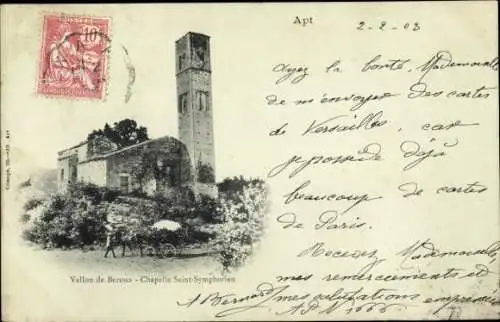 POSTES
10
Apt
2-2-03
Ayez la bonté, Mademoiselle
de m'envoyer des cartes
de Versailles, car
je possède déjà
beaucoup de cartes
de Paris.
Recevez Mademoiselle,
mes remerciements et
mes salutations empressées
A. Bernard
Vallon de Buoux - Chapelle Saint-Symphorien